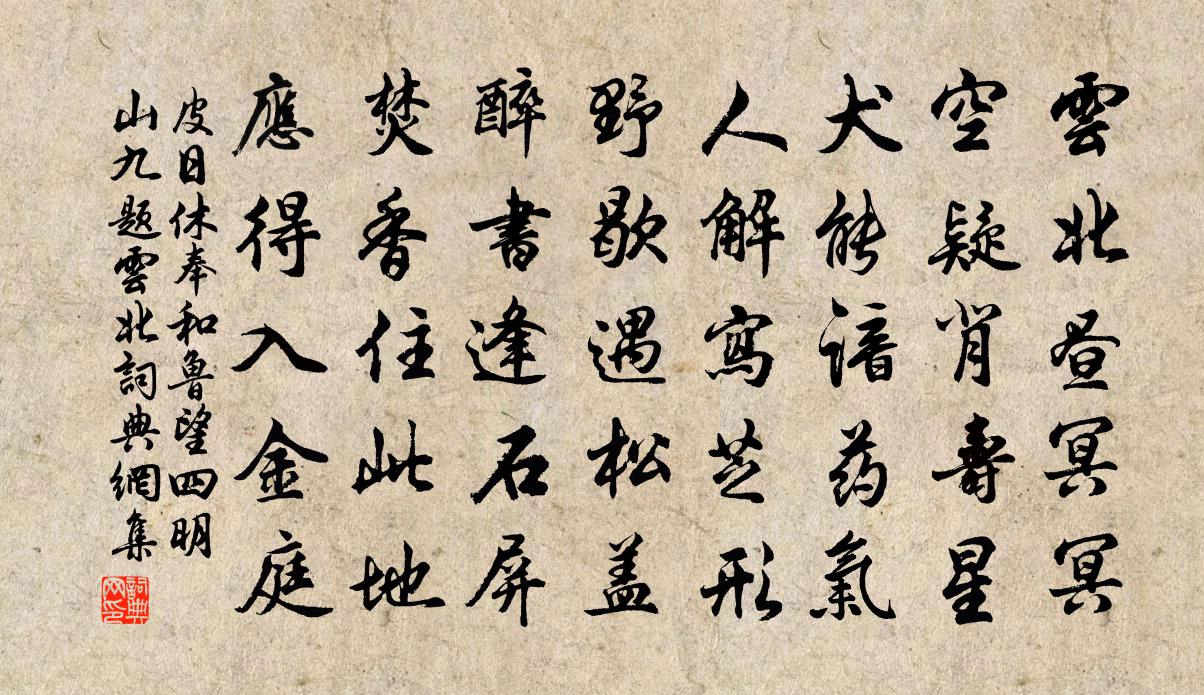 雲北昼冥冥
空疑肖壽星
犬能諳药氣
人解寫芝形
野歇遇松盖
醉書逢石屏
焚香住此地
應得入金庭
皮日休奉和魯望四明
山九题雲北詞典網集
詞典